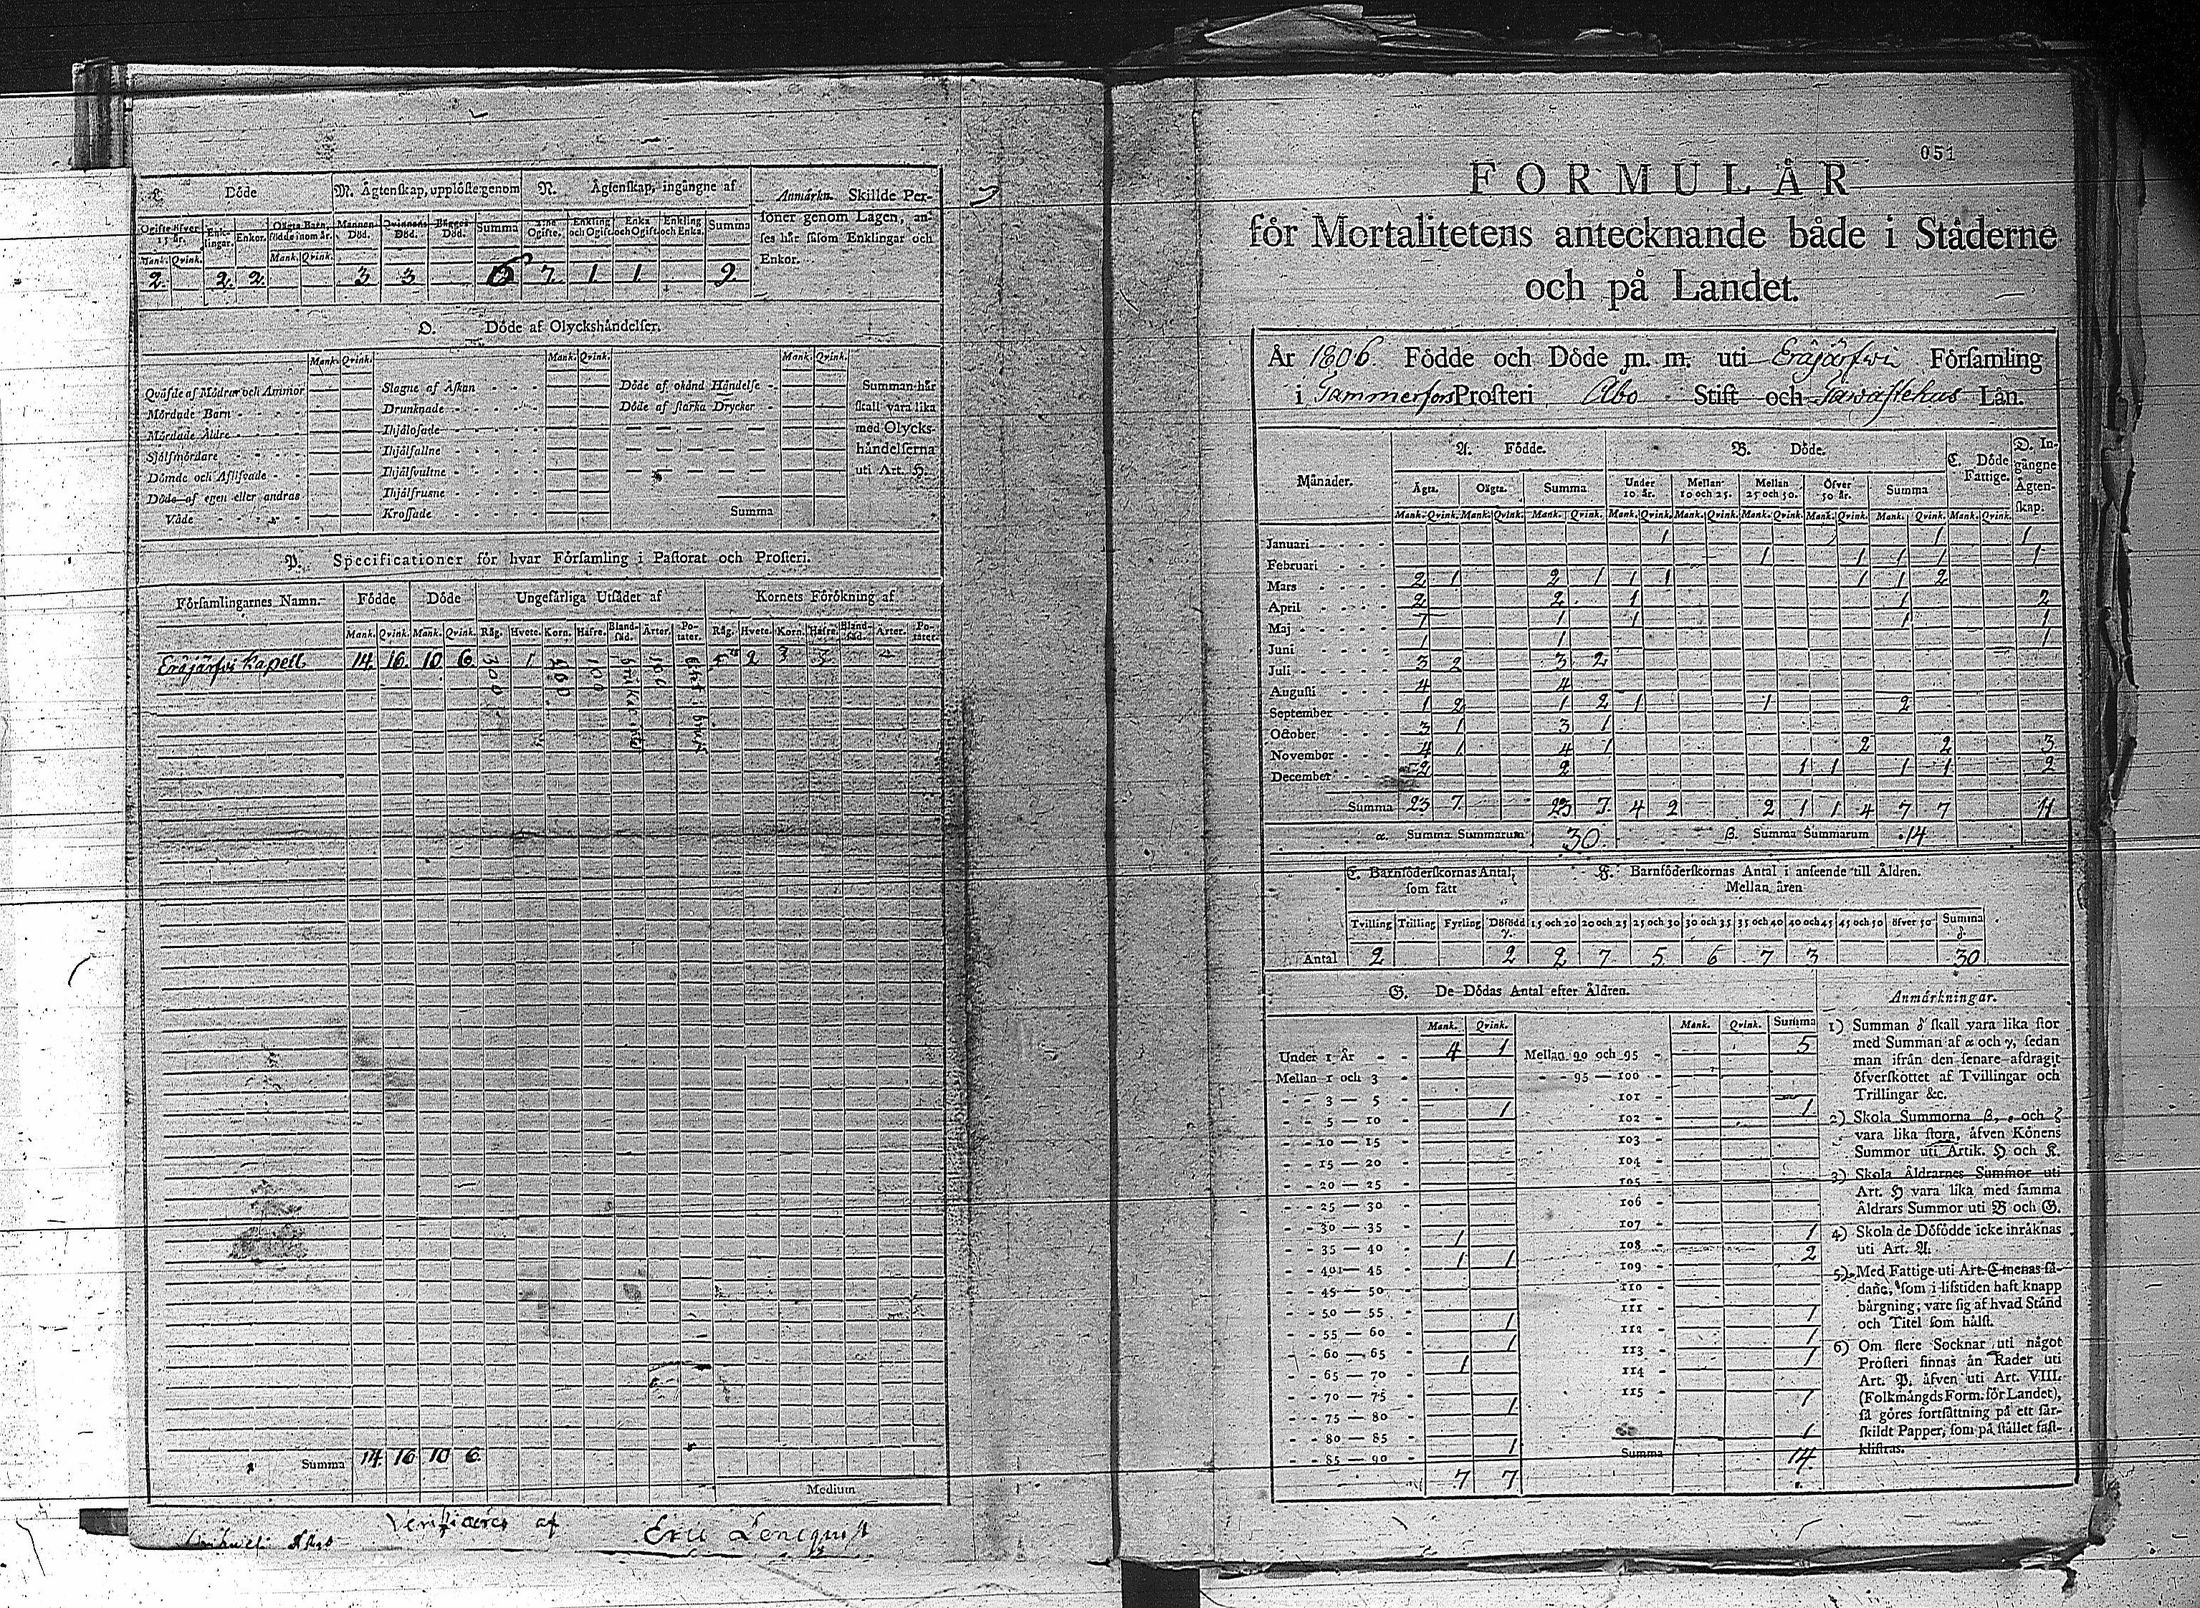 L. Döde
M. Ägtenskap, upplöste genom
N. Ägtenskap, ingångne af
Anmärkn. Skillde Per-
soner genom Lagen, an-
ses här såsom Enklingar och
Enkor.
Ogifte öfver 15 år. Enk-lingar. Enkor. Oägta Barn, födde inom år. Mannens Död. Qvinnans Död. Bägges Död. Summa Ogifte. Enkling och Ogift Enka och Ogift Enkling och Enka. Summa
Mank. Qvink. Mank. Qvink.
2. 2. 2. 3 3 6 7. 1 1 9
O. Döde af Olyckshändelser.
Mank. Qvink. Mank. Qvink. Mank. Qvink.
Qväfde af Mödrar och Ammor Slagne af Åskan - - - Döde af okänd Händelse - Summan här
Mördade Barn - - - - Drunknade - - - - - Döde af starka Drycker - skall vara lika
Mördade Äldre - - - - Ihjälosade - - - - - med Olycks-
Sjelfmördare - - - - Ihjälfallne - - - - - händelserna
Dömde och Aflifvade - - Ihjälsvultne - - - - uti Art. H.
Döde af egen eller andras Ihjälfrusne - - - -
Våde - - - - Krossade - - - - - Summa
P. Specificationer för hvar Församling i Pastorat och Prosteri.
Församlingarnes Namn. Födde Döde Ungefärliga Utsädet af Kornets Förökning af
Mank. Qvink. Mank. Qvink. Råg. Hvete. Korn. Hafre. Bland-säd. Ärter. Po-tater. Råg. Hvete. Korn. Hafre. Bland-säd. Ärter. Po-tater.
Eräjärfwi Kapell. 14. 16. 10 6. 300 1 100 2 3
Summa 14 16 10 6.
Medium
Verificeres af Eric Lencqvist
051
FORMULÄR
för Mortalitetens antecknande både i Städerne
och på Landet.
År 1806. Födde och Döde m. m. uti Eräjärfwi Församling
i Tammerfors Prosteri Åbo Stift och Tawastehus Län.
Månader. A. Födde. B. Döde. C. Döde Fattige. D. In-gångne Ägten-skap.
Ägta. Oägta. Summa Under 10 år. Mellan 10 och 25. Mellan 25 och 50. Öfver 50 år. Summa
Mank. Qvink. Mank. Qvink. Mank. Qvink. Mank. Qvink. Mank. Qvink. Mank. Qvink. Mank. Qvink. Mank. Qvink. Mank. Qvink.
Januari - - - - 1 1 1
Februari - - - 1 1 1 1 1
Mars - - - - 2 1 2 1 1 1 1 1 2
April - - - - 2 2 1 1 2
Maj - - - - 1 1 1 1 1
Juni - - - - 1 1 1
Juli - - - - 3 2 3 2
Augusti - - - 4 4
September - - - 1 2 1 2 1 1 2
October - - - 3 1 3 1
November - - - 4 1 4 1 2 2 3
December - - - 2 2 1 1 1 1 2
Summa 23 7 23 7 4 2 2 1 1 4 7 7 11
α. Summa Summarum 30. β. Summa Summarum 14
E. Barnföderskornas Antal, som fått
F. Barnföderskornas Antal i anseende till Åldren.
Mellan åren
Tvilling Trilling Fyrling Döfödd γ. 15 och 20 20 och 25 25 och 30 30 och 35 35 och 40 40 och 45 45 och 50 öfver 50 Summa δ.
Antal 2 2 2 7 5 6 7 3 30
G. De Dödas Antal efter Åldren.
Mank. Qvink. Mank. Qvink. Summa
Under 1 År - - 4 1 Mellan 90 och 95 - 5
Mellan 1 och 3 - - - 95 — 100 -
- - 3 — 5 - 101 -
- - 5 — 10 - 1 102 - 1
- - 10 — 15 - 103 -
- - 15 — 20 - 104 -
- - 20 — 25 - 105 -
- - 25 — 30 - 106 -
- - 30 — 35 - 107 -
- - 35 — 40 - 1 108 - 1
- - 40 — 45 - 1 1 109 - 2
- - 45 — 50 - 110 -
- - 50 — 55 - 111 -
- - 55 — 60 - 1 112 - 1
- - 60 — 65 - 1 113 - 1
- - 65 — 70 - 1 114 - 1
- - 70 — 75 - 115 -
- - 75 — 80 - 1 1
- - 80 — 85 -
- - 85 — 90 - 1 1
7 7 Summa 14.
Anmärkningar.
1) Summan δ skall vara lika stor
med Summan af α och γ, sedan
man ifrån den senare afdragit
öfverskottet af Tvillingar och
Trillingar &c.
2) Skola Summorna β, ε och ζ
vara lika stora, äfven Könens
Summor uti Artik. H och K.
3) Skola Åldrarnes Summor uti
Art. H vara lika med samma
Åldrars Summor uti B och G.
4) Skola de Döfödde icke inräknas
uti Art. A.
5) Med Fattige uti Art. C menas så-
dane, som i lifstiden haft knapp
bärgning, vare sig af hvad Stånd
och Titel som hälst.
6) Om flere Socknar uti något
Prosteri finnas än Rader uti
Art. P. äfven uti Art. VIII.
(Folkmängds Form. för Landet),
så göres fortsättning på ett sär-
skildt Papper, som på stället fast-
klistras.